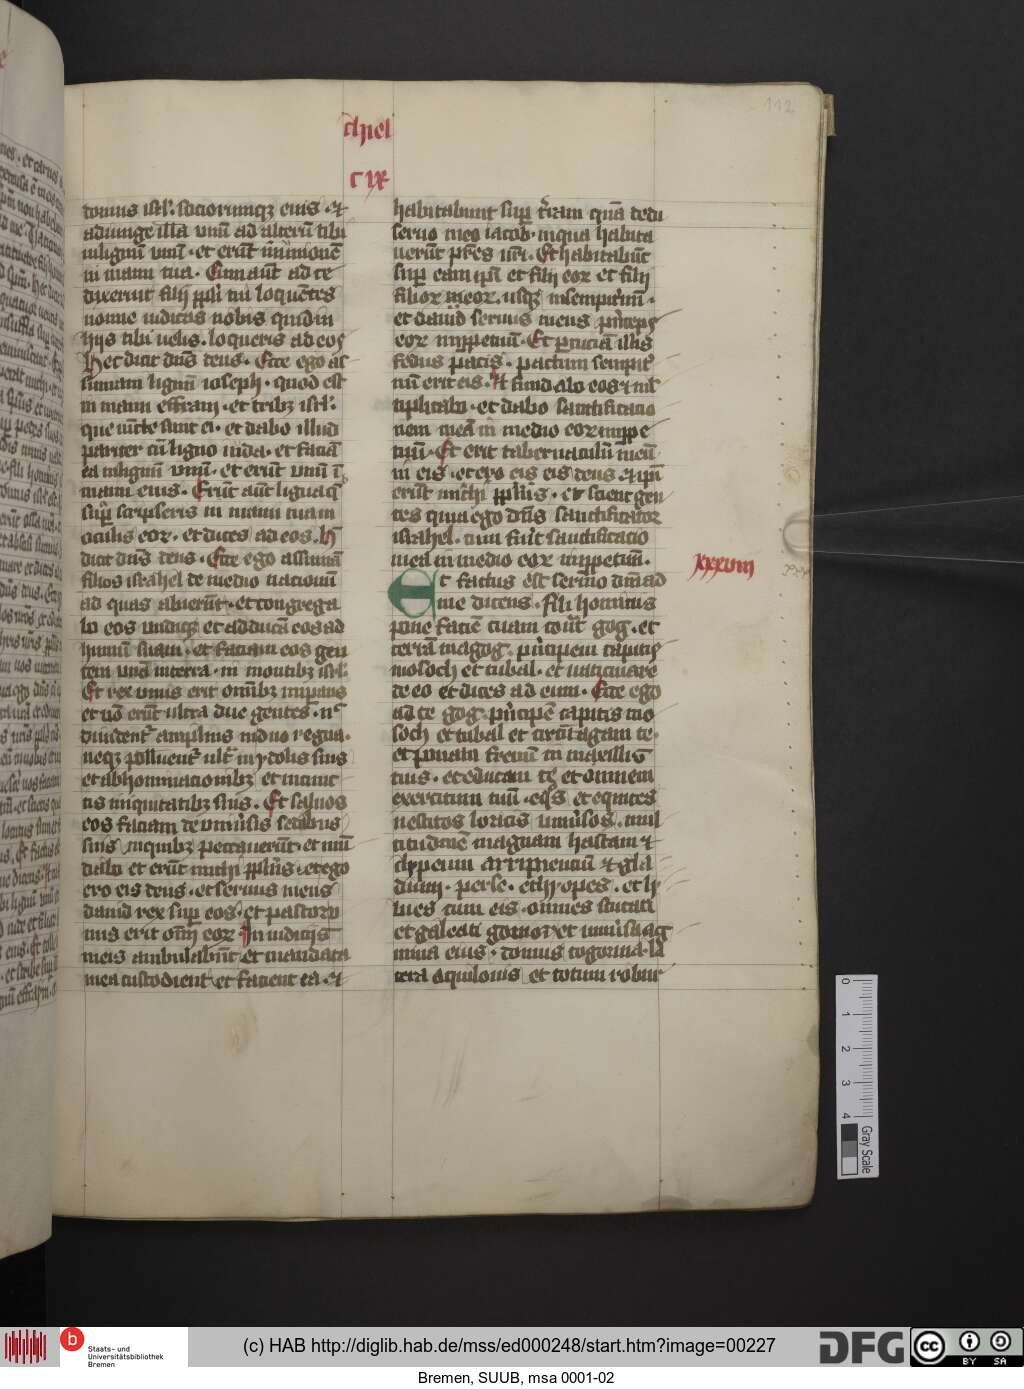 chiel
cix
112
domus isrl'. sociorumqz eius . et
adiunge illa vnū ad alterū tibi
in lignū vnū . et erūt in vnionē
in manu tua . Cum aūt ad te
dixerint filij ppli tui loquētes
nonne indicas nobis quid in
hijs tibi uelis . loqueris ad eos
Hec dicit dn̄s deus . Ecce ego as
sumam lignū ioseph . quod est
in manu effraim . et tribz isrl'.
que iūcte sunt ei . et dabo illud
pariter cū ligno iuda . et faciā
ea in lignū vnū . et erūt vnū ī
manu eius . Erūt aūt ligna q̄
sup̄ scripseris in manu tuam
oculis eoꝝ . et dices ad eos . h̄
dicit dn̄s deus . Ecce ego assumā
filios israhel de medio nacionū
ad quas abierūt . et congrega
bo eos undiqz et adducā eos ad
humū suam . et faciam eos gen
tem vnā in terra . in montibz isrl'.
Et rex vnus erit om̄ibz imperans
et nō erūt ultra due gentes . nc̄
diuidentr̄ amplius in duo regna .
neqz polluentr̄ ult' in ydolis suis
et abhominacionibz et in cunc
tis iniquitatibz suis . Et saluos
eos faciam de vniūsis sedibus
suis in quibz peccauerūt . et mū
dabo et erūt michi pplūs . et ego
ero eis deus . et seruus meus
dauid rex sup eos . et pastor v
nus erit om̄ eoꝝ In iudicijs
meis ambulabūt et mandata
mea custodient et facient ea . et
habitabunt sup t̄ram quā dedi
seruo meo iacob . in qua habita
uerūt pr̄es ur̄i . Et habitabūt
sup eam ip̄i et filij eoꝝ et filij
filioꝝ meoꝝ . usqz in sempit'nū .
et dauid seruus meus princeps
eoꝝ in ppetuū . Et pcuciā illis
fedus pacis . pactum sempit'
nū erit eis . Et fundabo eos et ml'
tiplicabo . et dabo sanctificacio
nem meā in medio eoꝝ in ppe
tuū . Et erit tabernaculū meū
in eis . et ero eis eis deus . et ip̄i
erūt michi pplūs . et scient gen
tes quia ego dn̄s sanctificator
israhel . cum fuīt sanctificacio
mea in medio eoꝝ in ppetuū .
xxxviii
Et factus est sermo dn̄i ad
me dicens . fili hominis
pone faciē tuam cont̄ gog . et
terrā magog . principem capitis
mosoch et tubal . et uaticinare
de eo et dices ad eum . Ecce ego
ad te gog . principē capitis mo
soch et tubal et circūagam te .
et ponam frenū in maxillis
tuis . et educam te et omnem
exercitum tuū . eq̄s et equites
uestitos loricis vniūsos . mul
titudinē magnam hastam et
clypeum arripientiū et gla
dium . perse . ethyopes . et li
bies cum eis . omnes scutati
et galeati gomor et vniūsa ag
mina eius . domus togorma . la
tera aquilonis et totum robur
0 1 2 3 4
Gray Scale
b Staats- und
Universitätsbibliothek
Bremen
(c) HAB http://diglib.hab.de/mss/ed000248/start.htm?image=00227
DFG
cc BY SA
Bremen, SUUB, msa 0001-02